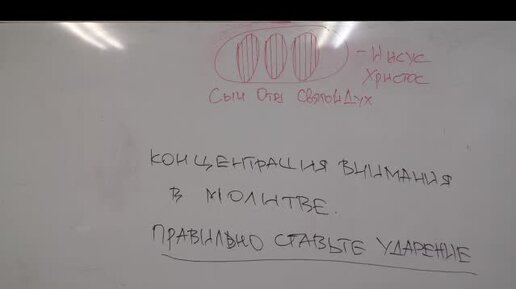 - Иисус
Христос
Сын Отец Святой Дух
КОНЦЕНТРАЦИЯ ВНИМАНИЯ
В МОЛИТВЕ.
ПРАВИЛЬНО СТАВЬТЕ УДАРЕНИЕ